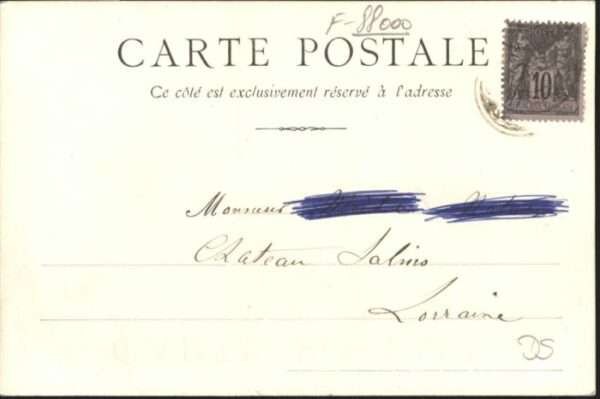 F-88000
CARTE POSTALE
Ce côté est exclusivement réservé à l'adresse
10
Monsieur
Château Salins
Lorraine
DS